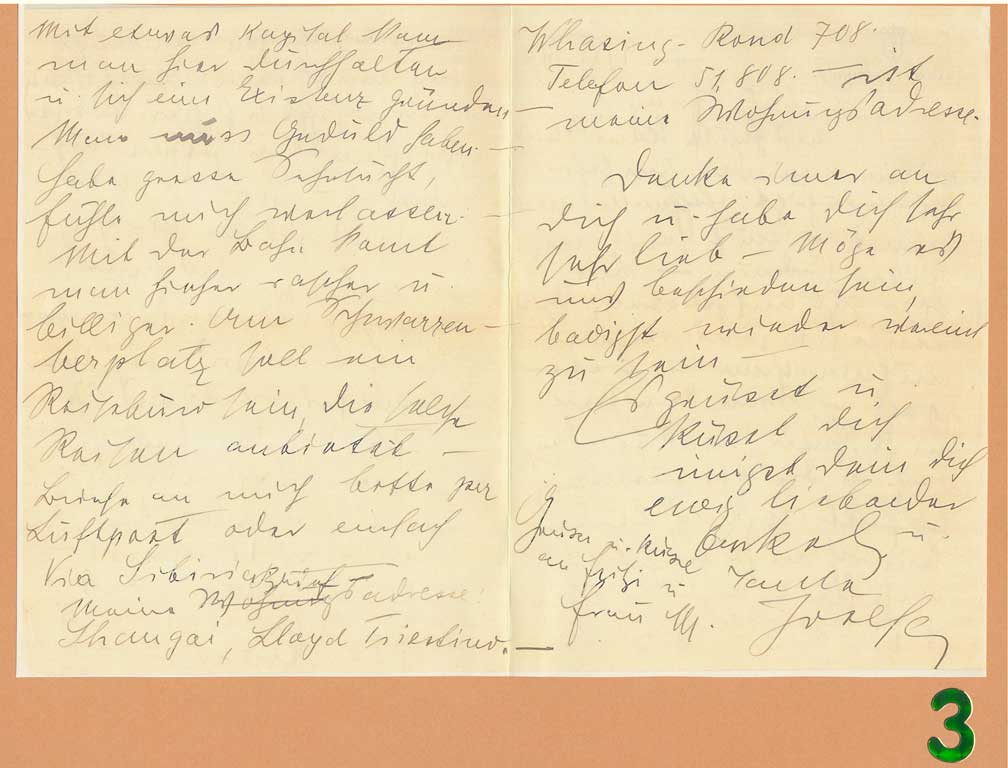 Mit etwas Kapital kann
man hier durchhalten
u. sich eine Existenz gründen –
Man muss Geduld haben. –
habe grosse Sehnsucht,
fühle mich verlassen. –
Mit der Bahn komt
man hieher rascher u.
billiger. Am Schwarzen-
bergplatz soll ein
Reisebüro sein, die solche
Reisen anbietet –
Briefe an mich bitte per
Luftpost oder einfach
Via Sibirien
meine Wohnungsadresse:
Shangai, Lloyd Triestino. –
Whasing-Road 708.
Telefon 51,808. – ist
meine Wohnungsadresse.
Denke imer an
Dich u. habe Dich sehr
sehr lieb – Möge es
uns beschieden sein,
baldigst wieder vereint
zu sein –
Es grüsst u.
küsst Dich
innigst Dein Dich
ewig liebender
Onkel u.
Tante
Josefa
Grüsse u. Küsse
an Fritzi u.
Frau M.
3